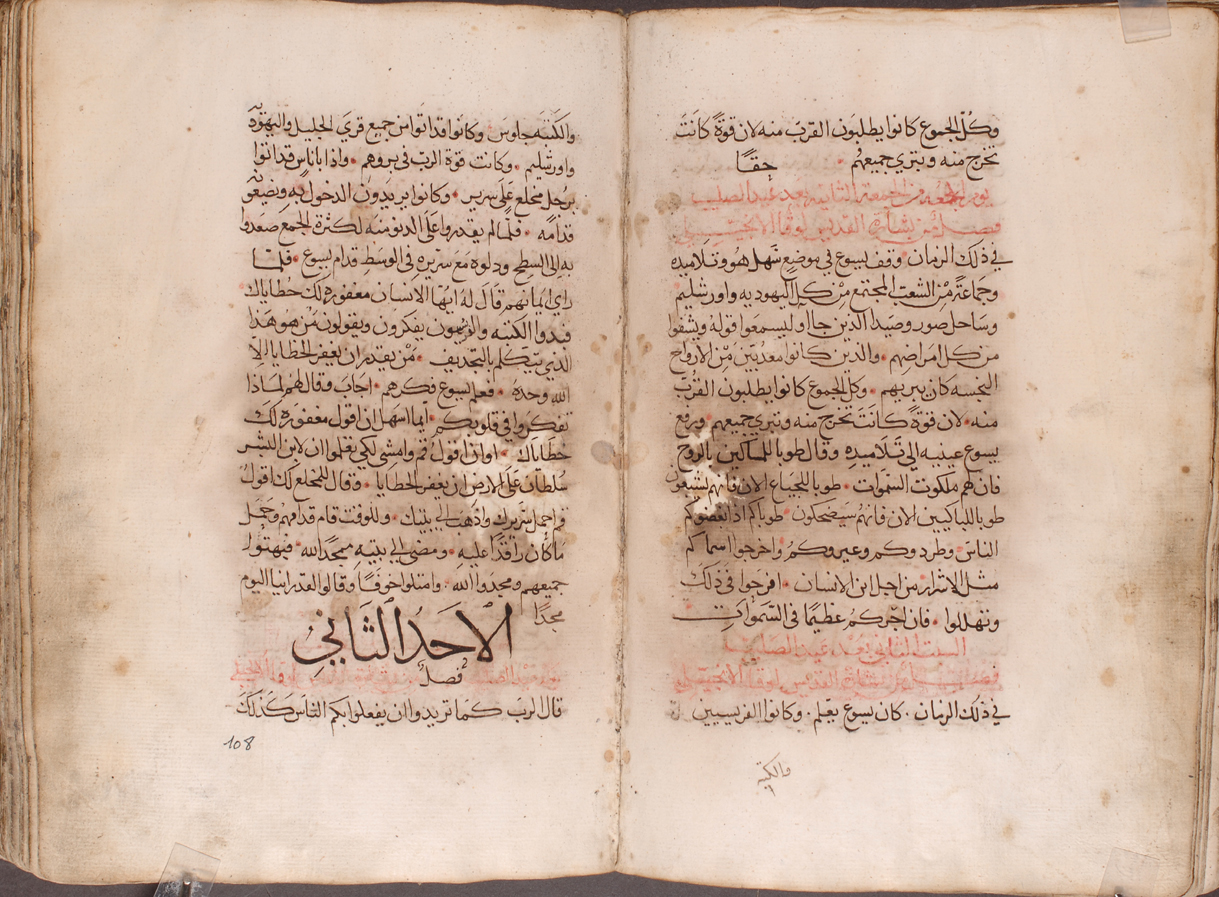 وكلّ الجموع كانوا يطلبون القرب منه لان قوةً كانت
تخرج منه وتبري جميعهم • حقًا
يوم الجمعه من الجمعة الثانيه بعد عيد الصليب
فصل من بشارة القديس لوقا الانجيلي
في ذلك الزمان • وقف يسوع في موضع سَهل هو وتلاميده
وجماعة من الشعب المجتمع من كل اليهوديه واورشليم
وساحل صور وصيدا الذين جااوا ليسمعوا قوله ويشفوا
من كل امراضهم • والذين كانوا معذبين من الارواح
النجسه كان يبريهم • وكل الجموع كانوا يطلبون القرب
منه • لان قوةً كانت تخرج منه وتبري جميعهم • ورفع
يسوع عينيه الي تلاميده وقال طوبا للمساكين بالروح
فان لهم ملكوت السموات • طوبا للجياع الان فانهم يشبعون
طوبا للباكيين الان فانهم سيضحكون • طوباكم اذا بغضوكم
الناس وطردوكم وعيروكم واخرجوا اسماكم
مثل الاشرار من اجل ابن الانسان • افرحوا في ذلك
وتهللوا • فان اجركم عظيمًا في السموات
السبت الثاني بعد عيد الصليب
فصل من بشارة القديس لوقا الانجيلي
في ذلك الزمان • كان يسوع يعلم • وكانوا الفريسيين
والكتبه
والكتبه جلوس • وكانوا قد اتوا من جميع قري الجليل واليهوديه
واورشليم • وكانت قوة الرب في بروهم • واذا باناس قد اتوا
برجل مخلع علي سرير • وكانوا يريدون الدخول به ويضعونه
قدامه • فلما لم يقدروا علي الدنو منه لكثرة الجمع صعدوا
به الي السطح ودلوه مع سريره في الوسط قدام يسوع • فلما
راي ايمانهم قال له ايها الانسان مغفورة لك خطاياك
فبدوا الكتبه والفريسيون يفكرون ويقولون من هو هذا
الذي يتكلم بالتجديف • من يقدر ان يغفر الخطايا الا
الله وحده • فعلم يسوع فكرهم • اجاب وقال لهم لماذا
تفكروا في قلوبكم • ايما اسهل ان اقول مغفورة لك
خطاياك • او ان اقول قم وامشي لكي تعلموا ان لابن البشر
سلطان علي الارض ان يغفر الخطايا • وقال للمخلع لك اقول
قم احمل سريرك واذهب الي بيتك • وللوقت قام قدامهم وحمل
ما كان راقدًا عليه • ومضي الي بيته ممجدًا لله • فبهتوا
جميعهم ومجدوا الله • وامتلوا خوفًا وقالوا لقد راينا اليوم
مجدًا
الاحد الثاني
فصل
قال الرب كما تريدوا ان يفعلوا بكم الناس كذلك
108